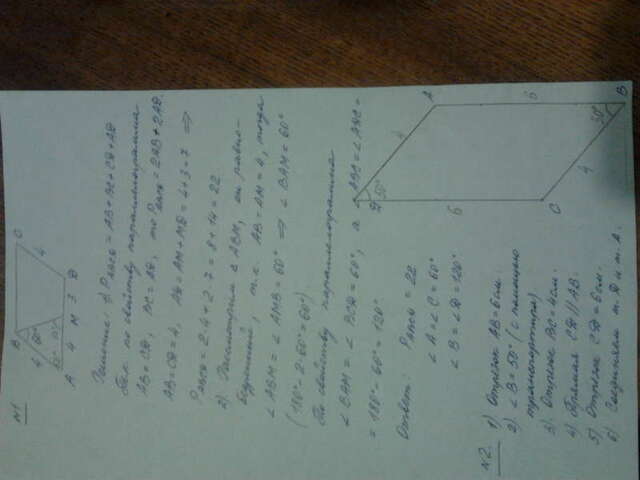 №1
B C
4 60° 4
60° 60°
A 4 M 3 D
Решение: 1) P ABCD = AB + BC + CD + AD
Т.к. по свойству параллелограмма
AB = CD, BC = AD, то P ABCD = 2AB + 2AD.
AB = CD = 4, AD = AM + MD = 4 + 3 = 7 ⇒
P ABCD = 2·4 + 2·7 = 8 + 14 = 22
2) Рассмотрим △ ABM, он равно-
бедренный, т.к. AB = AM = 4, тогда
∠ ABM = ∠ AMB = 60° ⇒ ∠ BAM = 60°
(180° - 2·60° = 60°).
По свойству параллелограмма
∠ BAM = ∠ BCD = 60°, а ∠ ABC = ∠ ADC =
= 180° - 60° = 120°
Ответ: P ABCD = 22
∠ A = ∠ C = 60°
∠ B = ∠ D = 120°
№2.
1) Отрезок AB = 6 см.
2) ∠ B = 50° (с помощью
транспортира)
3) Отрезок BC = 4 см.
4) Прямая CD // AB.
5) Отрезок CD = 6 см.
6) Соединяем т. D и т. A.
A 6 B
4 50°
50° 4
D 6 C